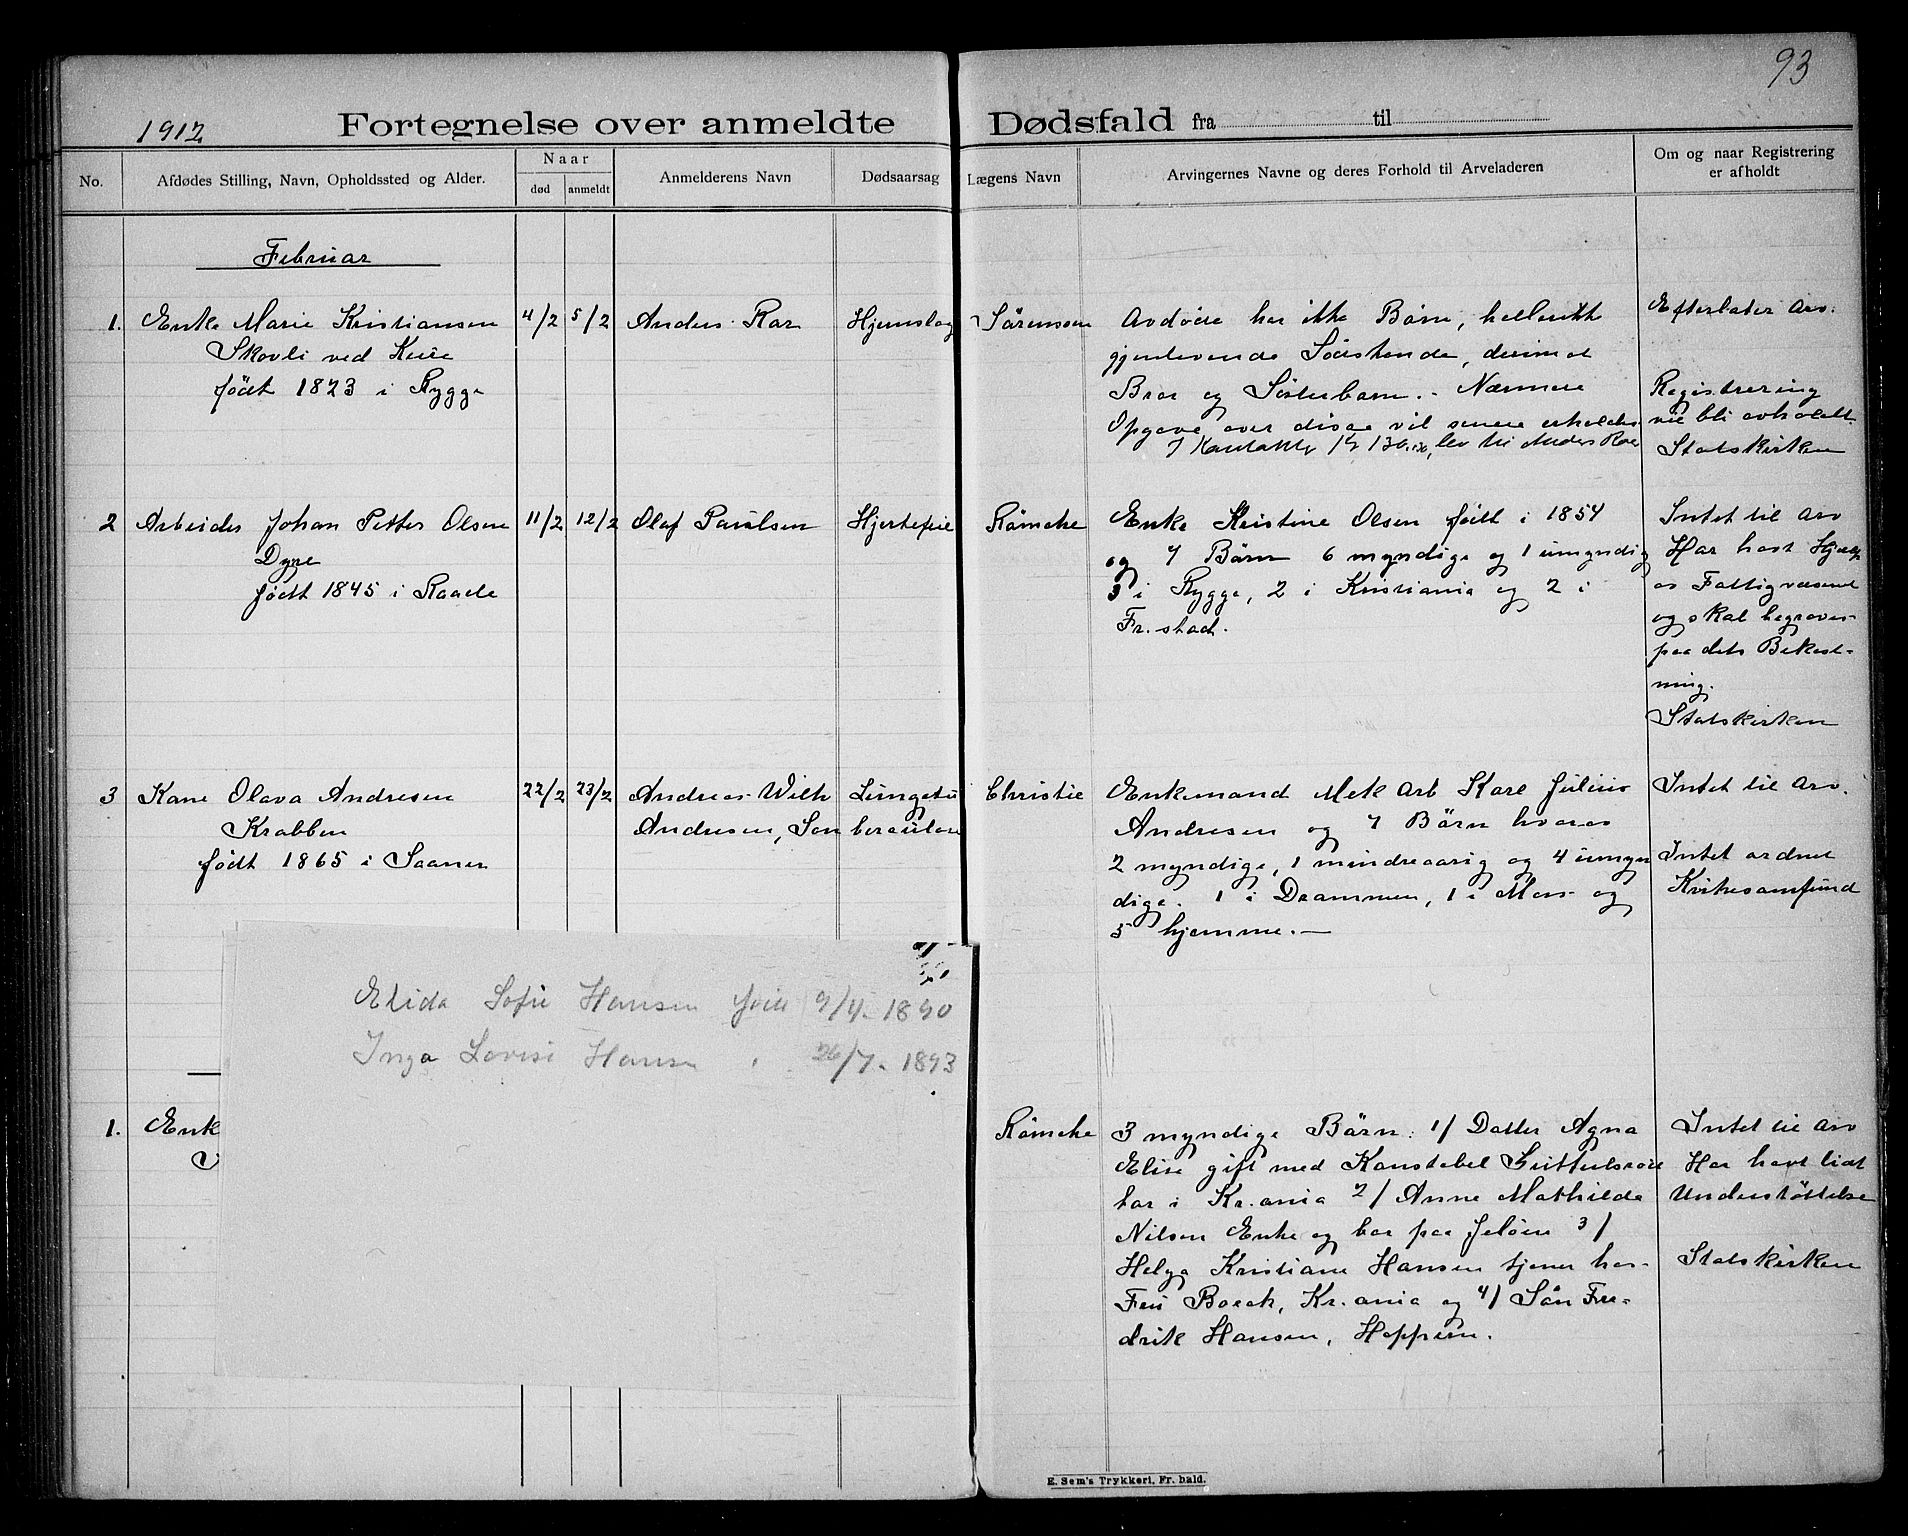 93
1912 Fortegnelse over anmeldte Dødsfald fra til
No. Afdødes Stilling, Navn, Opholdssted og Alder. Naar død anmeldt Anmelderens Navn Dødsaarsag Lægens Navn Arvingernes Navne og deres Forhold til Arveladeren Om og naar Registrering er afholdt
Februar
1. Enke Marie Kristiansen 4/2 5/2 Anders Rør Hjernslag Sörenssen
Skovli ved
født 1823 i Rygge
Avdöde har ikke Börn, heller ikke
gjenlevende Södskende, derimot
Bror og Sösterbarn. Nærmere
Opgave over disse vil senere erholdes
Efterlater arv.
Registrering
vil bli avholdt.
Statskirken
2 Arbeider Johan Petter Olsen 11/2 12/2 Olaf Paulsen Hjertefeil Römcke
Dyre
født 1845 i Raade
Enke Kristine Olsen født i 1854
og 7 Börn 6 myndige og 1 umyndig
3 i Rygge, 2 i Kristiania og 2 i
Fr.stad.
Intet til arv
Har havt Hjælp
av Fattigvæsenet
og skal begraves
paa dets Bekost-
ning.
Statskirken
3 Kone Olava Andresen 22/2 23/2 Andreas Wilh Lungetu Christie
Krabben Andresen, Sön berculose
født 1865 i Saaner
Enkemand Mek Arb Karl Julius
Andresen og 7 Börn hvorav
2 myndige, 1 mindreaarig og 4 umyn
dige. 1 i Drammen, 1 i Moss og
5 hjemme.—
Intet til arv.
Intet ordnet
Kirkesamfund
Elida Sofie Hansen født 9/4. 1890
Inga Lovise Hansen 26/7. 1893
1. Enk
Römcke
3 myndige Börn: 1/ Datter Agna
Elise gift med Konstabel
bor i Kr.ania 2/ Anne Mathilde
Nilsen Enke og bor paa Jelöen 3/
Helga Kristiane Hansen tjener hos
Fru Boeck, Kr.ania og 4/ Sön Fre-
drik Hansen, Hoppern.
Intet til arv
Har havt lidt
Understöttelse
Statskirken
E. Sem's Trykkeri, Fr.hald.